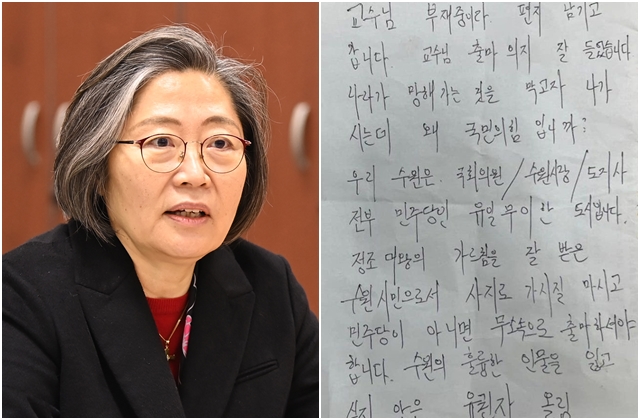 교수님 부재중이라 편지 남기고
갑니다. 교수님 출마 의지 잘 들었습니다
나라가 망해가는 것을 막고자 나가
시는데 왜 국민의힘 입니까?
우리 수원은 국회의원/수원시장/도지사
전부 민주당인 유일무이한 도시입니다.
정조 대왕의 가르침을 잘 받은
수원시민으로서 사지로 가시질 마시고
민주당이 아니면 무소속으로 출마하셔야
합니다. 수원의 훌륭한 인물을 잃고
싶지 않은 유권자 올림